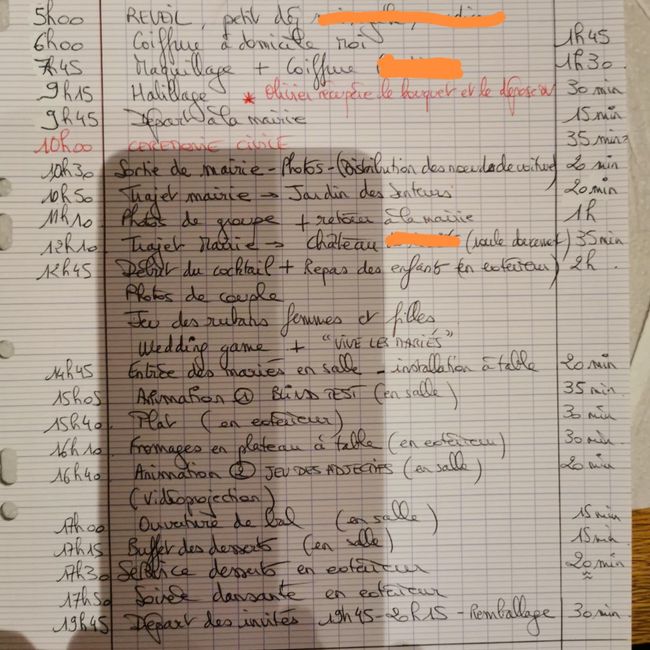 5h00 REVEIL, petit déj
6h00 Coiffure à domicile moi 1h45
7h45 Maquillage + Coiffure 1h30
9h15 Habillage * Olivier récupère le bouquet et le dépose 30 min
9h45 Départ à la mairie 15 min
10h00 CEREMONIE CIVILE 35 min
10h30 Sortie de mairie - Photos - (Distribution des noeuds de voiture) 20 min
10h50 Trajet mairie → Jardin des senteurs 20 min
11h10 Photos de groupe + retour à la mairie 1h
12h10 Trajet Mairie → Château (roule doucement) 35 min
12h45 Début du cocktail + Repas des enfants (en extérieur) 2h
Photos de couple
Jeu des rubans femmes et filles
Wedding game + "VIVE LES MARIÉS"
14h45 Entrée des mariés en salle - installation à table 20 min
15h05 Animation ① BLIND TEST (en salle) 35 min
15h40 Plat (en extérieur) 30 min
16h10 Fromages en plateau à table (en extérieur) 30 min
16h40 Animation ② JEU DES ADJECTIFS (en salle) 20 min
(Vidéoprojection)
17h00 Ouverture de bal (en salle) 15 min
17h15 Buffet des desserts (en salle) 15 min
17h30 Service desserts en extérieur 20 min
17h50 Soirée dansante en extérieur
19h45 Départ des invités 19h45-20h15 - Remballage 30 min